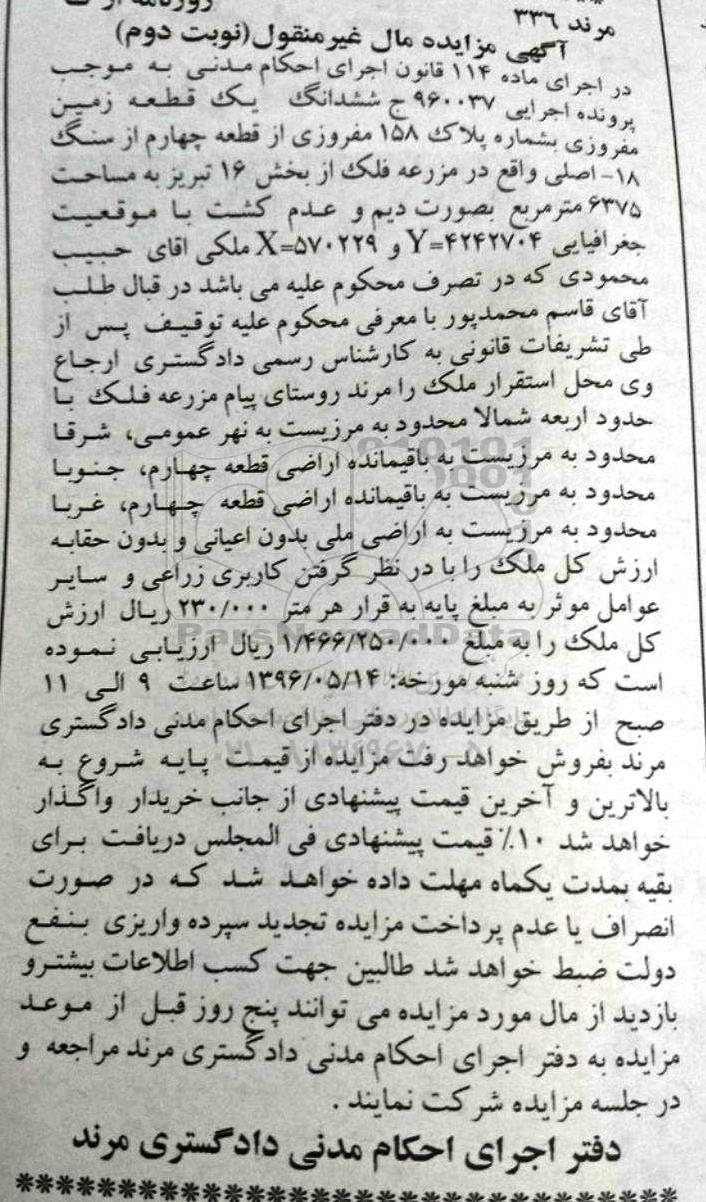 مرند ۳۳۶
آگهی مزایده مال غیرمنقول(نوبت دوم)
در اجرای ماده ۱۱۴ قانون اجرای احکام مدنی به موجب
پرونده اجرایی ۹۶۰۰۳۷ ج ششدانگ یک قطعه زمین
مفروزی بشماره پلاک ۱۵۸ مفروزی از قطعه چهارم از سنگ
۱۸- اصلی واقع در مزرعه فلک از بخش ۱۶ تبریز به مساحت
۶۳۷۵ مترمربع بصورت دیم و عدم کشت با موقعیت
جغرافیایی Y=۴۲۴۲۷۰۴ و X=۵۷۰۲۲۹ ملکی اقای حبیب
محمودی که در تصرف محکوم علیه می باشد در قبال طلب
آقای قاسم محمدپور با معرفی محکوم علیه توقیف پس از
طی تشریفات قانونی به کارشناس رسمی دادگستری ارجاع
وی محل استقرار ملک را مرند روستای پیام مزرعه فلک با
حدود اربعه شمالا محدود به مرزیست به نهر عمومی، شرقا
محدود به مرزیست به باقیمانده اراضی قطعه چهارم، جنوبا
محدود به مرزیست به باقیمانده اراضی قطعه چهارم، غربا
محدود به مرزیست به اراضی ملی بدون اعیانی و بدون حقابه
ارزش کل ملک را با در نظر گرفتن کاربری زراعی و سایر
عوامل موثر به مبلغ پایه به قرار هر متر ۲۳۰/۰۰۰ ریال ارزش
کل ملک را به مبلغ ۱/۴۶۶/۲۵۰/۰۰۰ ریال ارزیابی نموده
است که روز شنبه مورخه: ۱۳۹۶/۰۵/۱۴ ساعت ۹ الی ۱۱
صبح از طریق مزایده در دفتر اجرای احکام مدنی دادگستری
مرند بفروش خواهد رفت مزایده از قیمت پایه شروع به
بالاترین و آخرین قیمت پیشنهادی از جانب خریدار واگذار
خواهد شد ۱۰٪ قیمت پیشنهادی فی المجلس دریافت برای
بقیه بمدت یکماه مهلت داده خواهد شد که در صورت
انصراف یا عدم پرداخت مزایده تجدید سپرده واریزی بنفع
دولت ضبط خواهد شد طالبین جهت کسب اطلاعات بیشترو
بازدید از مال مورد مزایده می توانند پنج روز قبل از موعد
مزایده به دفتر اجرای احکام مدنی دادگستری مرند مراجعه و
در جلسه مزایده شرکت نمایند .
دفتر اجرای احکام مدنی دادگستری مرند
ParsNamadData